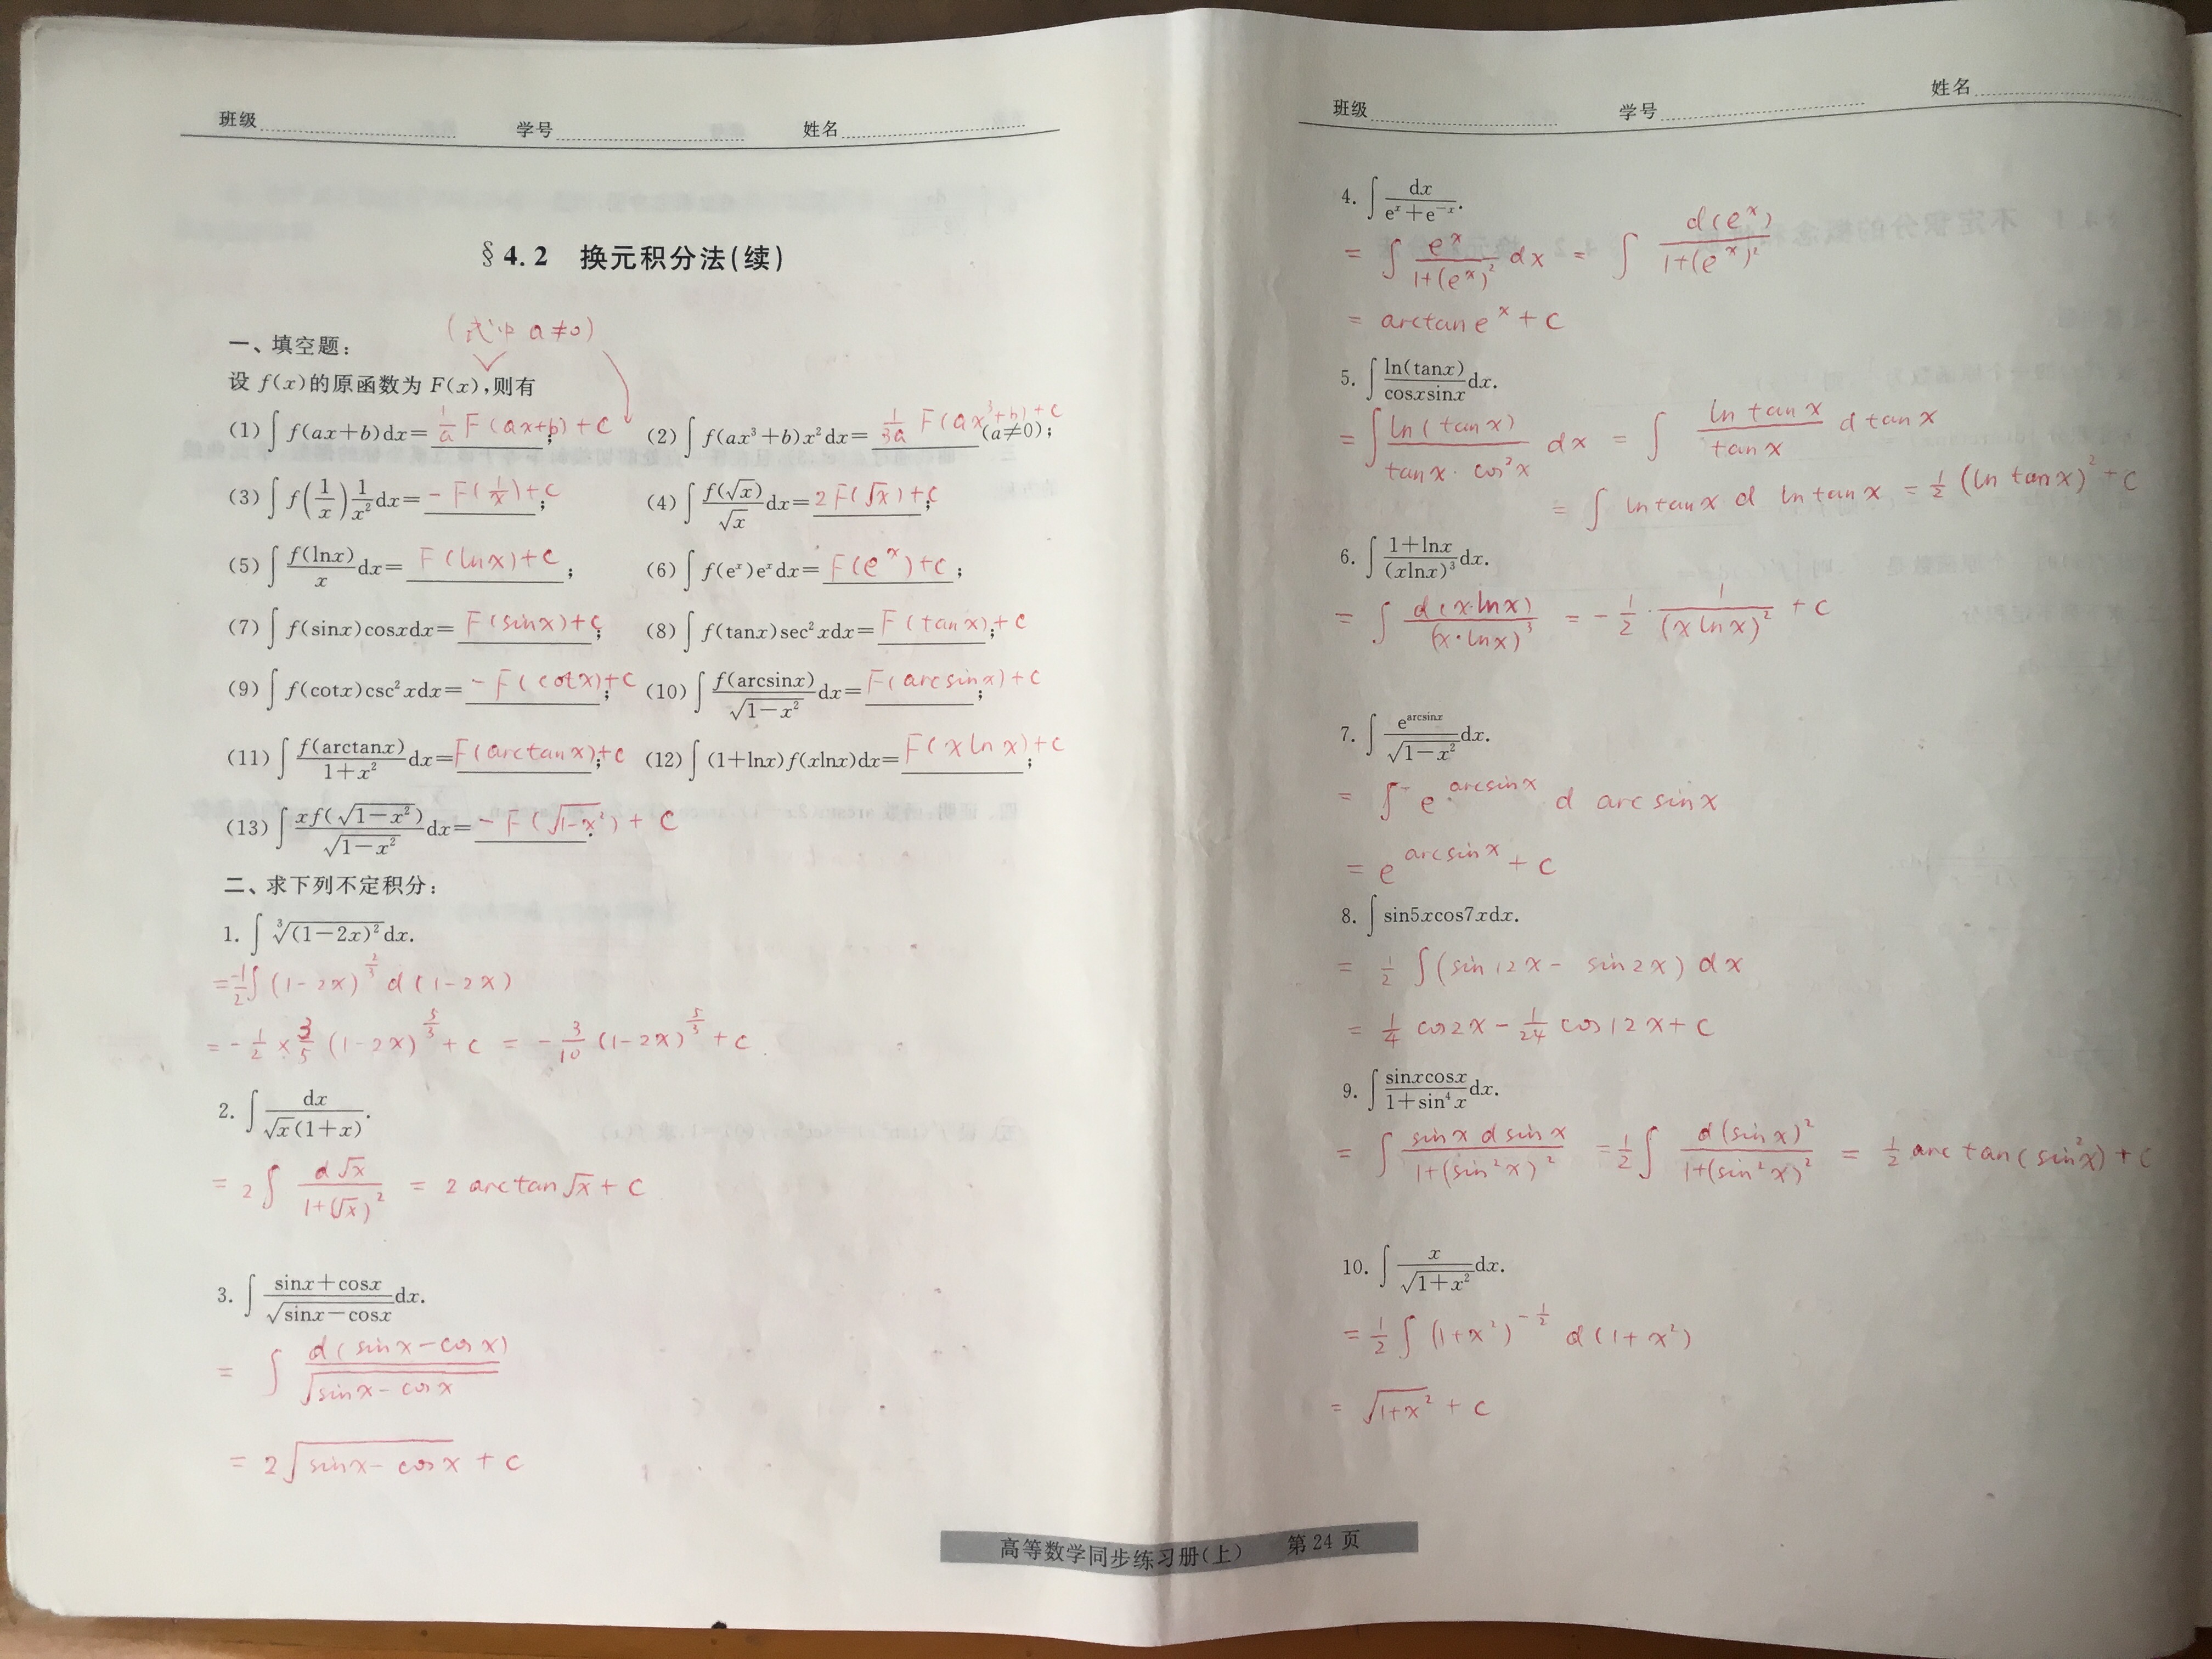 班级 学号 姓名
§4.2 换元积分法(续)
(式中 a≠0)
一、填空题:
设 f(x)的原函数为 F(x),则有
(1) ∫ f(ax+b)dx= 1/a F(ax+b)+C ; (2) ∫ f(ax³+b)x²dx= 1/3a F(ax³+b)+C (a≠0);
(3) ∫ f(1/x) 1/x² dx= -F(1/x)+C ; (4) ∫ f(√x)/√x dx= 2F(√x)+C ;
(5) ∫ f(lnx)/x dx= F(lnx)+C ; (6) ∫ f(eˣ)eˣdx= F(eˣ)+C ;
(7) ∫ f(sinx)cosxdx= F(sinx)+C ; (8) ∫ f(tanx)sec²xdx= F(tanx)+C ;
(9) ∫ f(cotx)csc²xdx= -F(cotx)+C ; (10) ∫ f(arcsinx)/√(1-x²) dx= F(arcsinx)+C ;
(11) ∫ f(arctanx)/(1+x²) dx= F(arctanx)+C ; (12) ∫ (1+lnx)f(xlnx)dx= F(xlnx)+C ;
(13) ∫ xf(√(1-x²))/√(1-x²) dx= -F(√(1-x²))+C .
二、求下列不定积分:
1. ∫ ∛(1-2x)² dx.
= -1/2 ∫ (1-2x)^(2/3) d(1-2x)
= -1/2 × 3/5 (1-2x)^(5/3) + C = -3/10 (1-2x)^(5/3) + C .
2. ∫ dx/(√x(1+x)).
= 2∫ d√x/(1+(√x)²) = 2 arctan√x + C
3. ∫ (sinx+cosx)/√(sinx-cosx) dx.
= ∫ d(sinx-cosx)/√(sinx-cosx)
= 2√(sinx-cosx) + C
班级 学号 姓名
4. ∫ dx/(eˣ+e⁻ˣ).
= ∫ eˣ/(1+(eˣ)²) dx = ∫ d(eˣ)/(1+(eˣ)²)
= arctan eˣ + C
5. ∫ ln(tanx)/(cosxsinx) dx.
= ∫ ln(tanx)/(tanx·cos²x) dx = ∫ ln tanx/tanx d tanx
= ∫ ln tanx d ln tanx = 1/2 (ln tanx)² + C
6. ∫ (1+lnx)/(xlnx)³ dx.
= ∫ d(x·lnx)/(x·lnx)³ = -1/2 · 1/(xlnx)² + C
7. ∫ e^(arcsinx)/√(1-x²) dx.
= ∫ e^(arcsinx) d arcsinx
= e^(arcsinx) + C
8. ∫ sin5xcos7xdx.
= 1/2 ∫ (sin12x - sin2x) dx
= 1/4 cos2x - 1/24 cos12x + C
9. ∫ sinxcosx/(1+sin⁴x) dx.
= ∫ sinx d sinx/(1+(sin²x)²) = 1/2 ∫ d(sinx)²/(1+(sin²x)²) = 1/2 arc tan(sin²x) + C
10. ∫ x/√(1+x²) dx.
= 1/2 ∫ (1+x²)^(-1/2) d(1+x²)
= √(1+x²) + C
高等数学同步练习册(上) 第 24 页